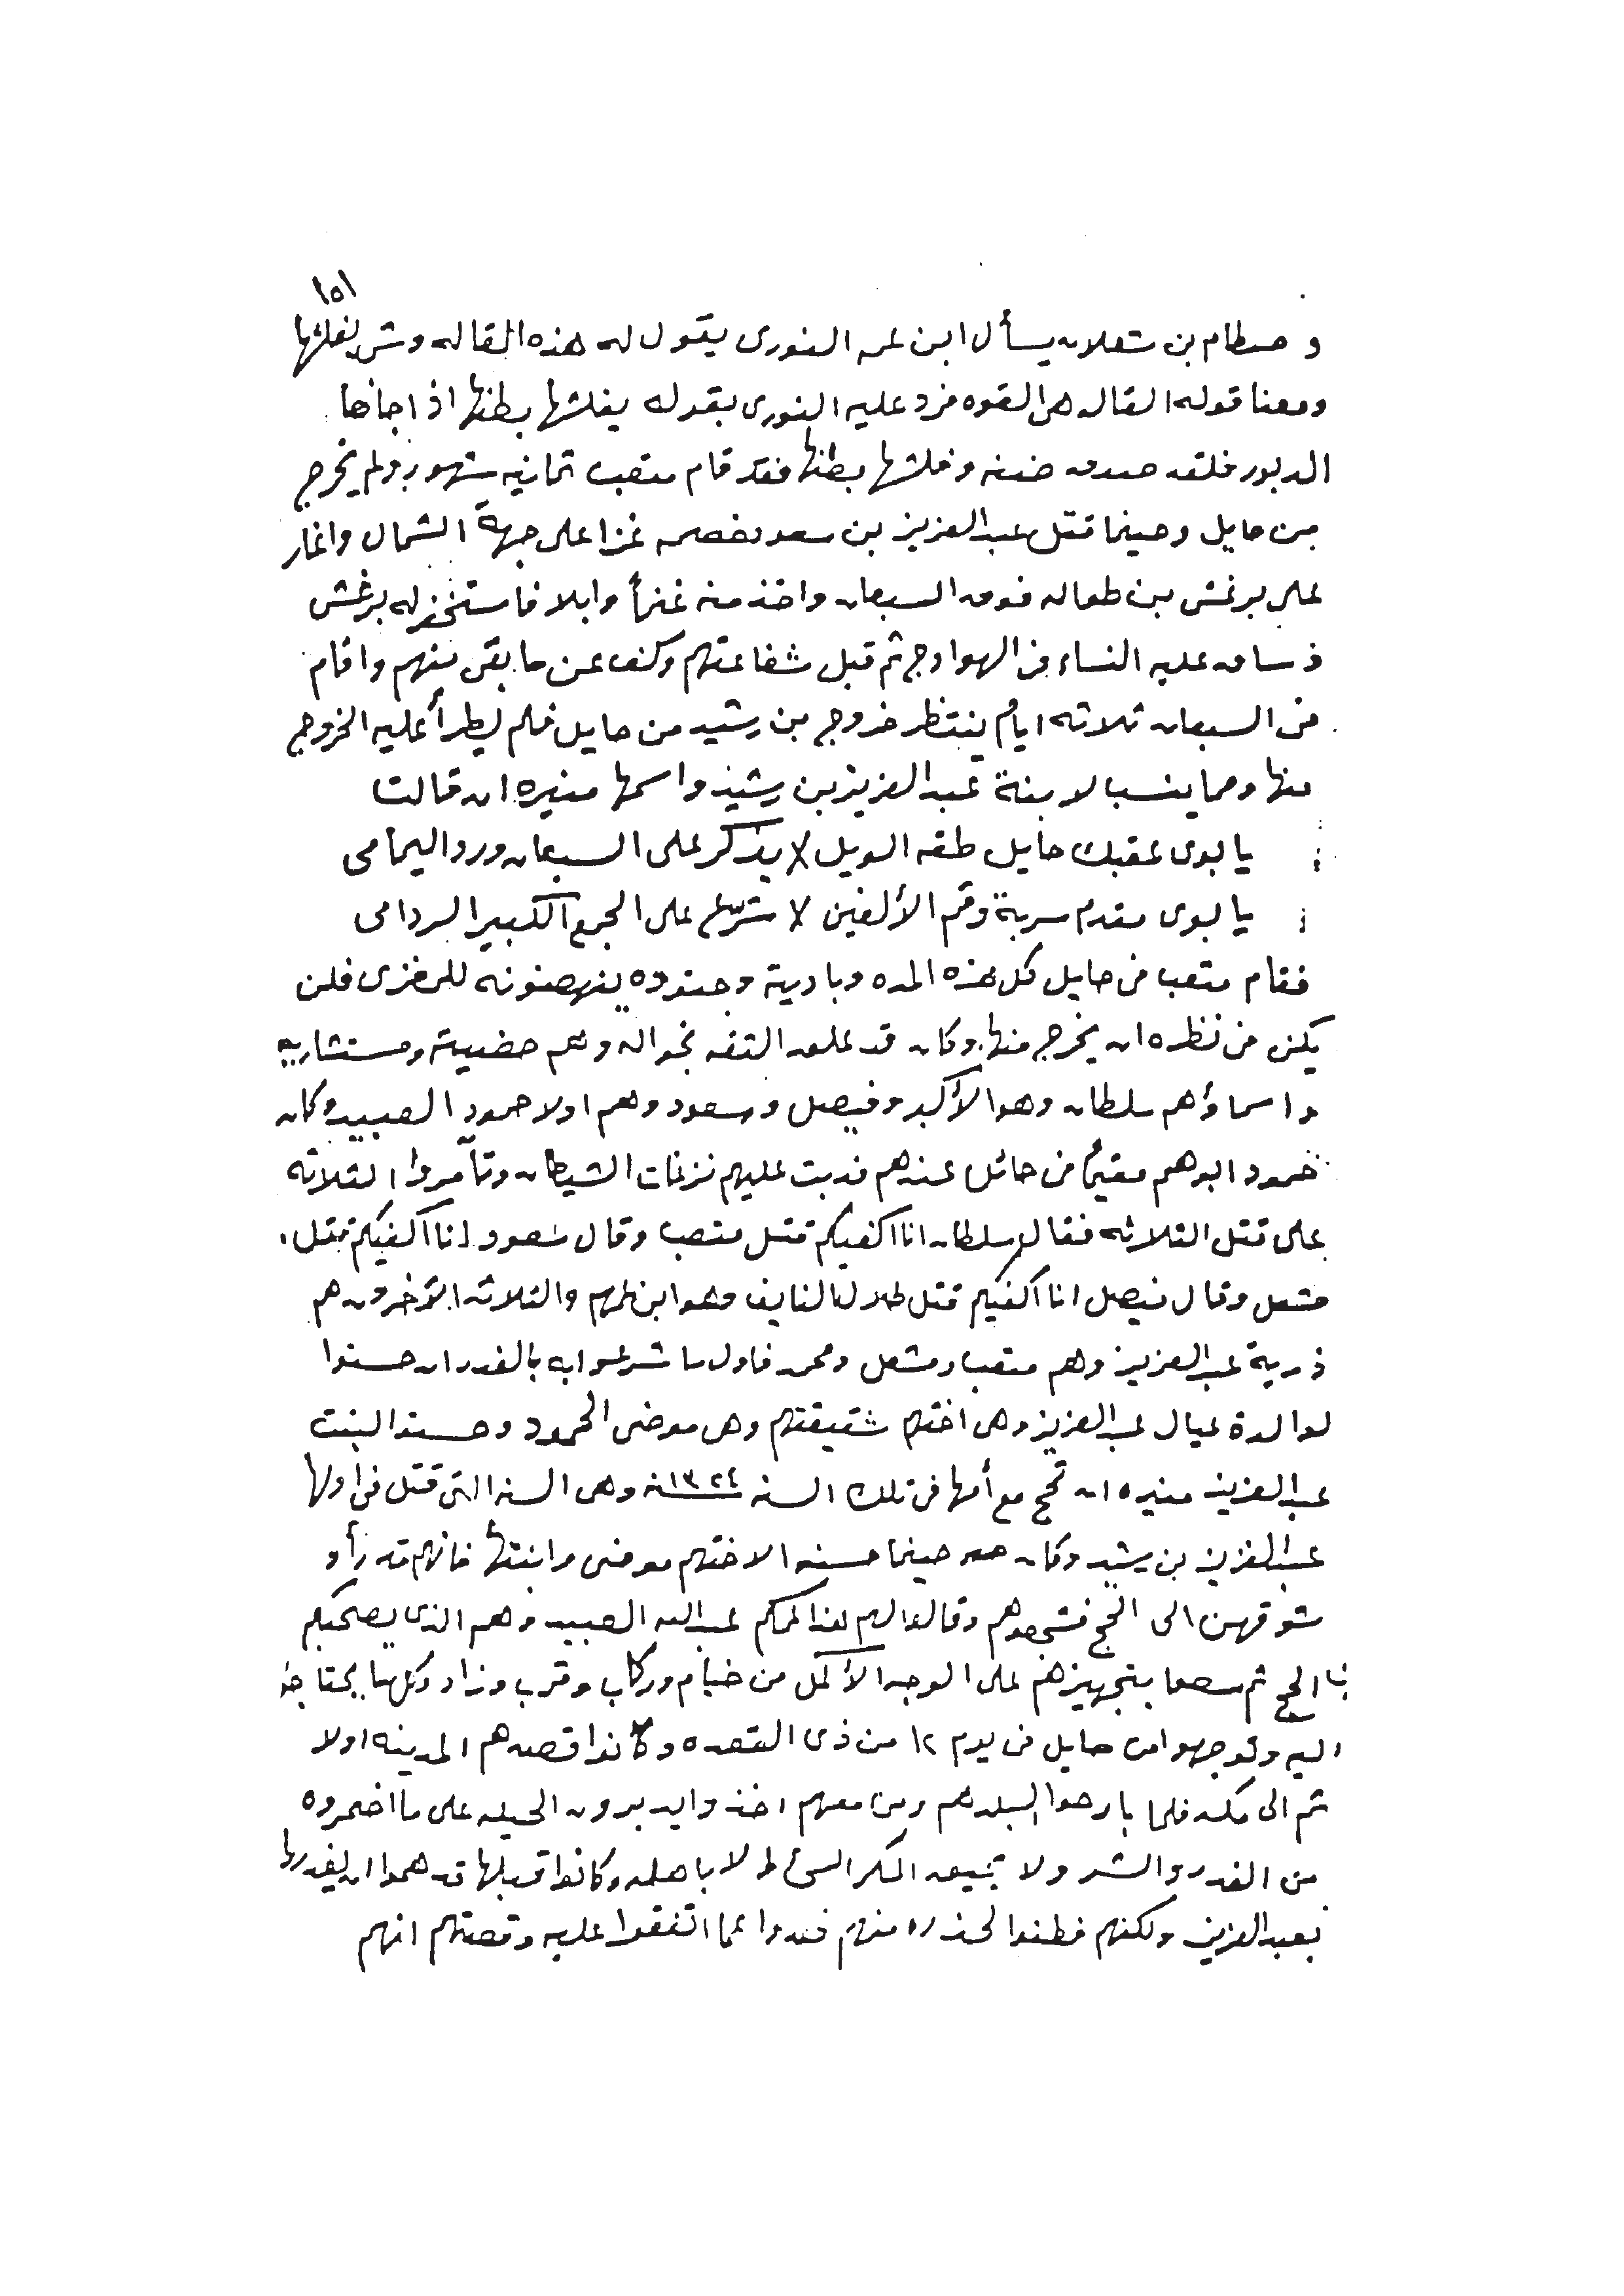 ١٥١
و سطام بن شعلان يسأل ابن عمه النورى يقول له هذه القاله وش يفلشها
ومعنا قوله القاله هى القوه فرد عليه النورى بقوله يفلشها بطنها اذا جاها
الدبور فلقد صدق ضنه وفلشها بطنها فقد قام متعب ثمانيه شهور ولم يخرج
من حايل وحينما قتل عبدالعزيز بن سعود خصمه غزا على جهة الشمال واغار
على برغش بن طواله فوق السبعان واخذ منه غنماً وابلا فاستخفر له برغش
فساق عليه النساء فى الهوادج ثم قبل شفاعتهم وكف عن ما بقى منهم واقام
فى السبعان ثلاثه ايام ينتظر خروج بن رشيد من حايل فلم يطرأ عليه الخروج
منها ومما ينسب لابنة عبدالعزيز بن رشيد واسمها منيره ان قالت
يا بوى عقبك حايل طقه الويل لا يذكر على السبعان ورد اليمامى
يا بوى مقدم سربة وقم الألفين لا شرّع على الجمع الكبير الردامى
فقام متعب فى حايل كل هذه المده وباديته وجنوده ينهضونه للمغزى فلن
يكن فى نظره ان يخرج منها وكان قد علق الثقه بخواله وهم عضيبته ومستشاريه
واسماؤهم سلطان وهو الأكبر وفيصل وسعود وهم اولا حمود العبيد وكان
حمود ابوهم مقيماً فى حائل عندهم فدبت عليهم نزغات الشيطان وتآمروا الثلاثه
على قتل الثلاثه فقال سلطان انا اكفيكم قتل متعب وقال سعود انا اكفيكم قتل
مشعل وقال فيصل انا اكفيكم قتل طلال النايف وهو ابن عمهم والثلاثه الآخرون هم
ذرية عبدالعزيز وهم متعب ومشعل ومحمد فاول ما شرعوا به بالغدر ان حسنوا
لوالدة عيال عبدالعزيز وهى اختهم شقيقتهم وهى موضى الحمود وحسنوا لبنت
عبدالعزيز منيره ان تحج مع أمها فى تلك السنه ١٣٢٤ﻫ وهى السنه التى قتل فى اولها
عبدالعزيز بن رشيد وكان حينما حسنوا لاختهم موضى وابنتها فانهم قد رأو
شوقهن الى الحج فشجعوهم وقالوا لهم هذا عمكم عبدالله العبيد وهو الذى يصحبكم
فى الحج ثم سعوا بتجهيزهم على الوجه الأكمل من خيام وركاب وقرب وزاد وكل ما يحتاجوا
اليه وتوجهوا من حايل فى يوم ١٢ من ذى القعده وكانوا قصدهم المدينه اولا
ثم الى مكه فلما بارحوا البلد هم ومن معهم اخذوا يدبرون الحيله على ما اضمروه
من الغدر والشر ولا يحيق المكر السئ الا باهله وكانوا قبلها قد هموا ان يغدروا
بعبدالعزيز ولكنهم فطنوا لحذره منهم فعدوا عما اتفقوا عليه وقصتهم انهم